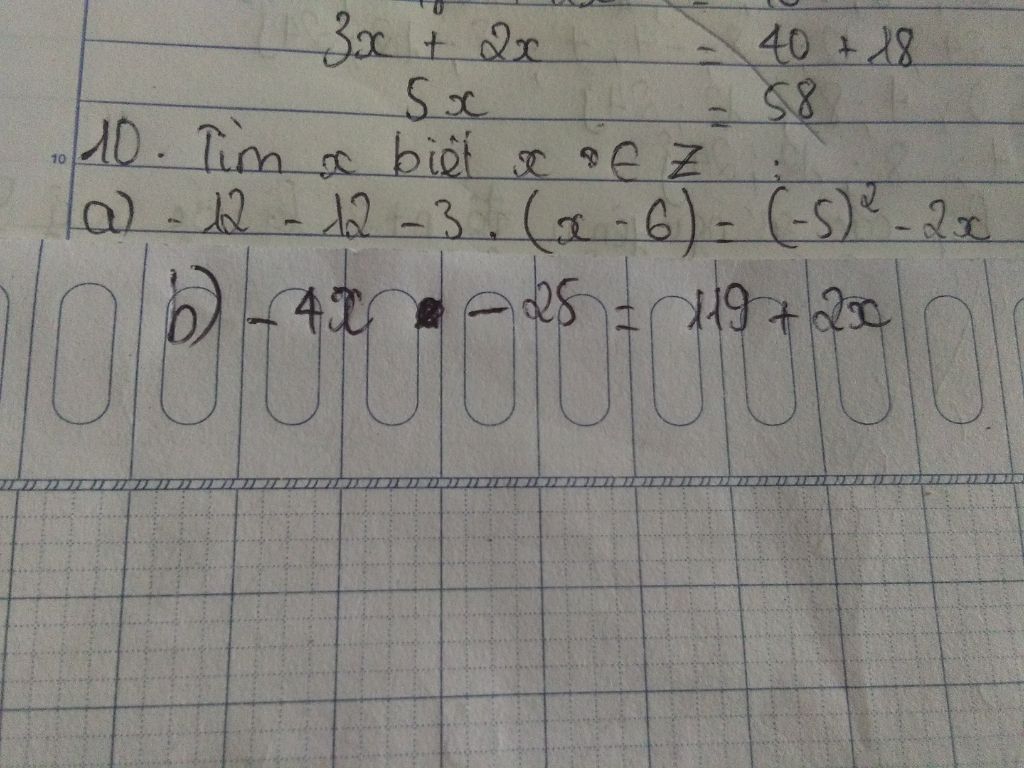 3x + 2x = 40 + 18
5x = 58
10
10. Tìm x biết x ∈ Z :
a) - 12 - 12 - 3 . (x - 6) = (-5)² - 2x
b) - 4x - 25 = 119 + 2x